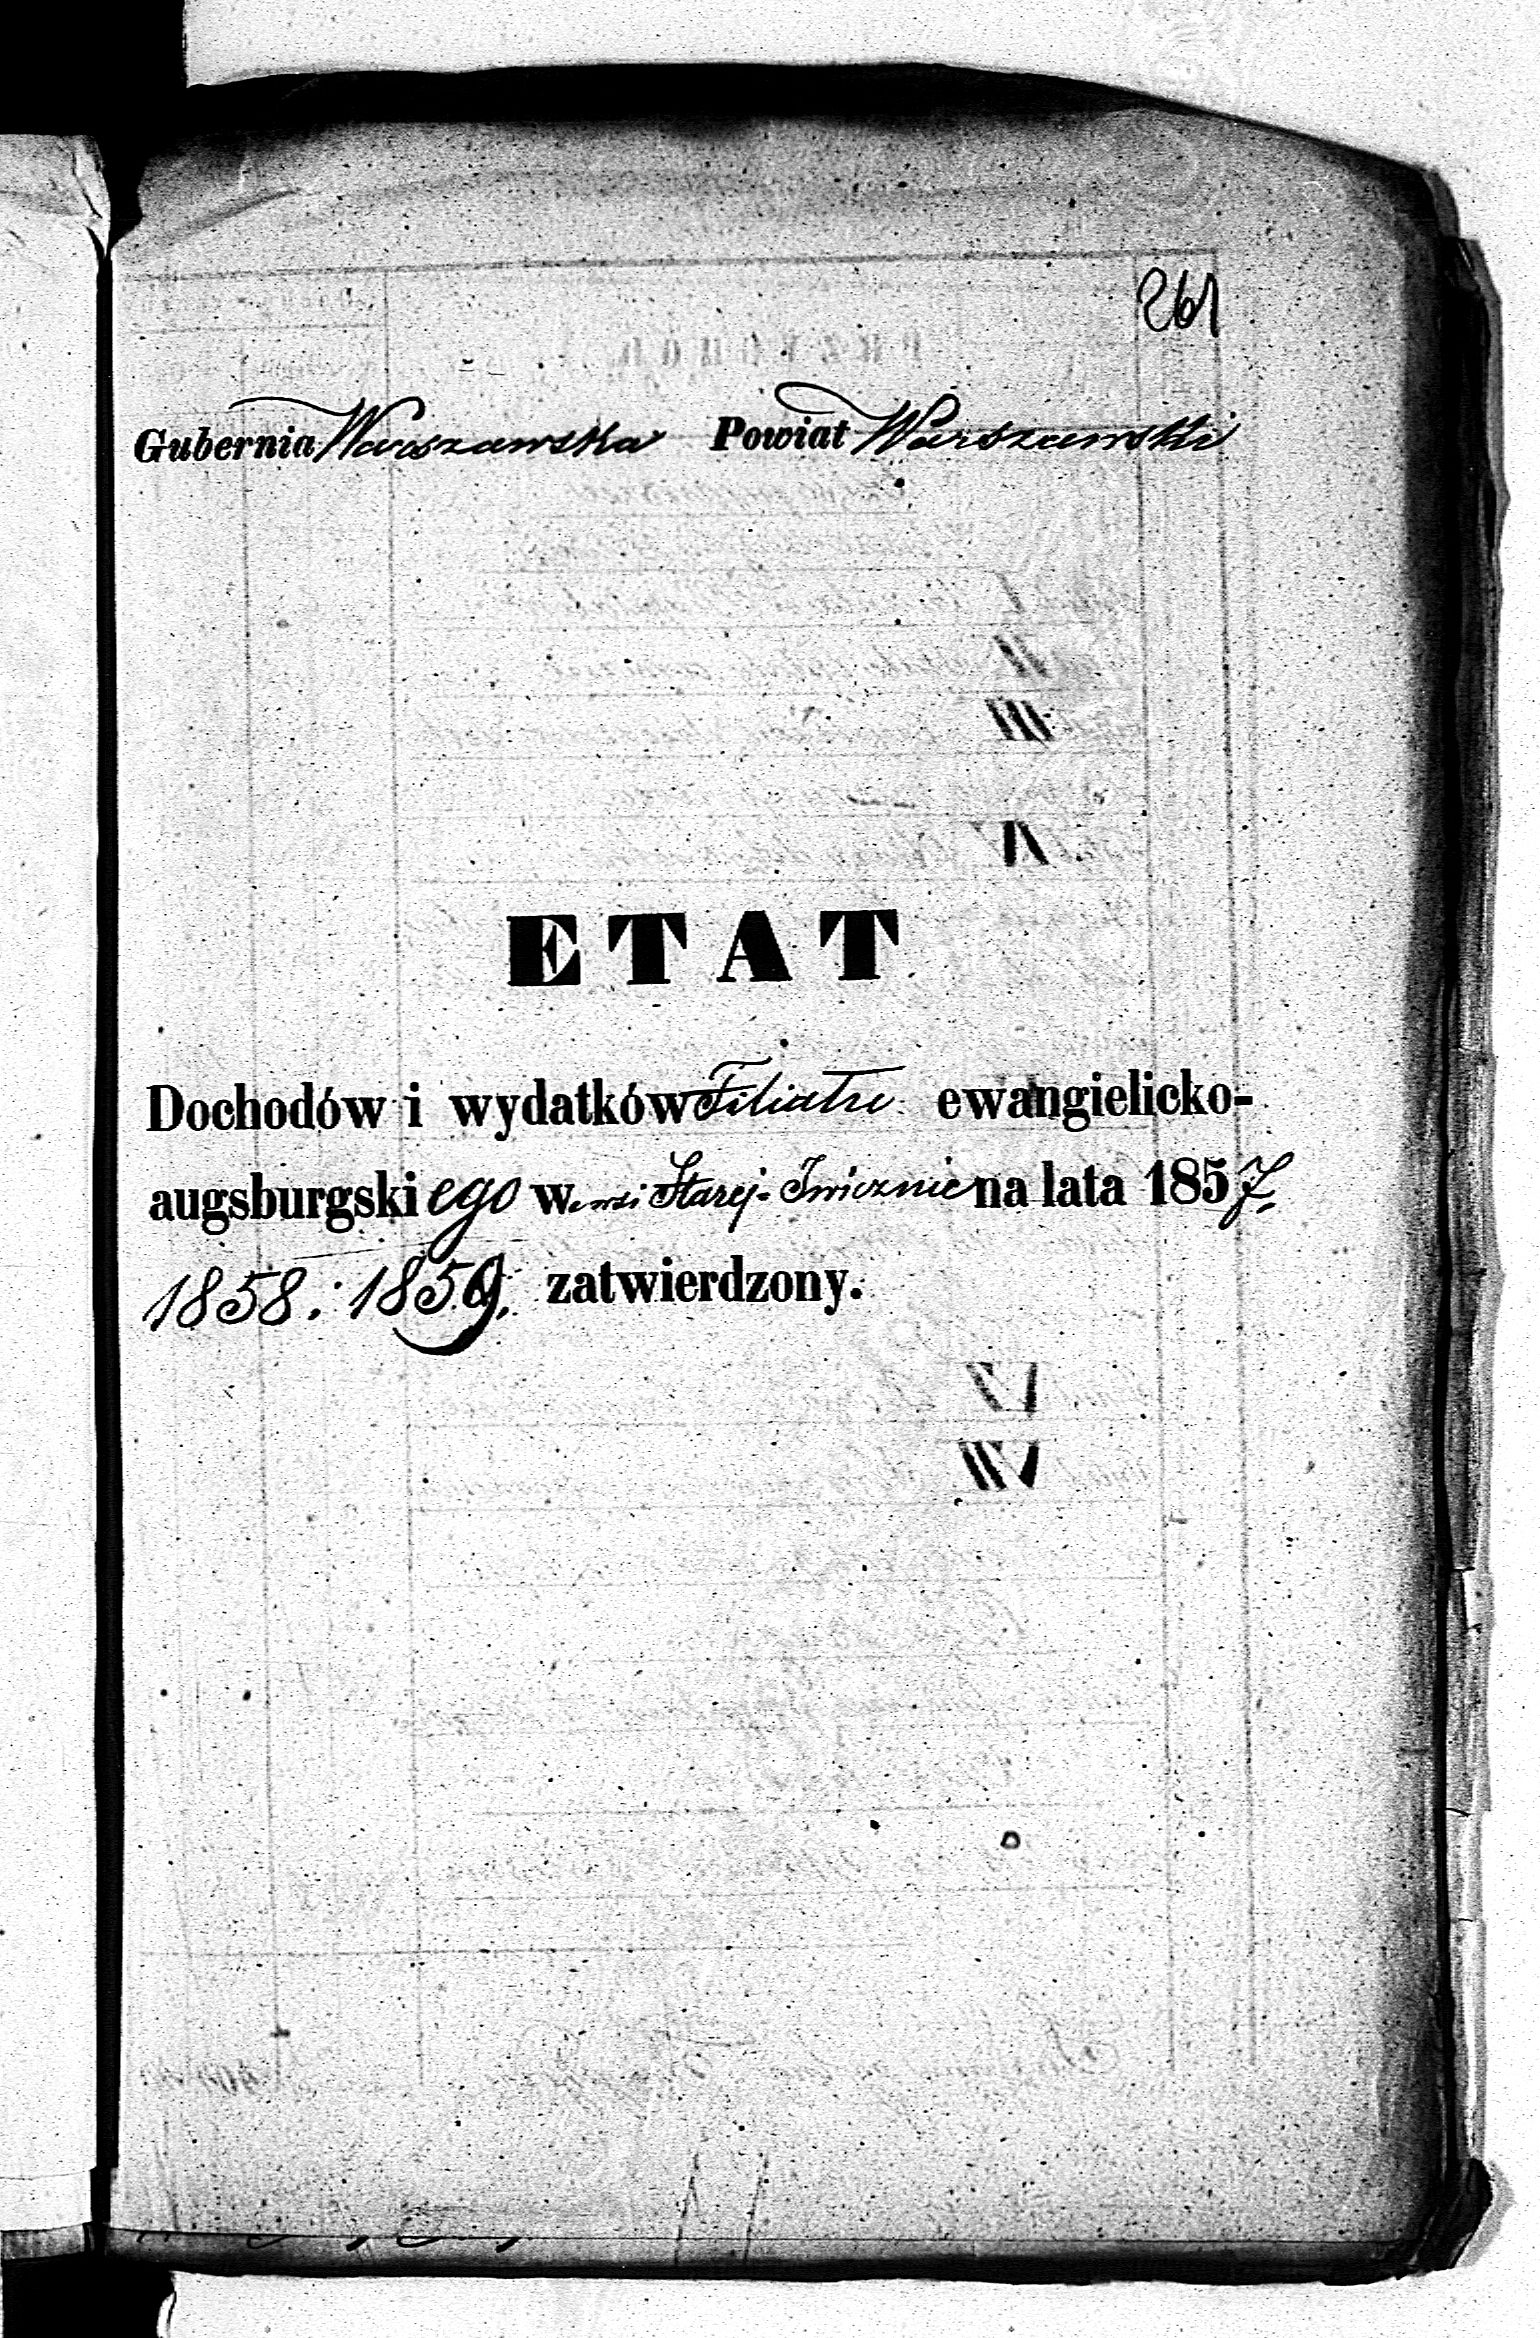 261
Gubernia Warszawska Powiat Warszawski
ETAT
Dochodów i wydatków Filiału ewangielicko-
augsburgskiego w wsi Starej-Iwicznie na lata 1857,
1858. 1859, zatwierdzony.